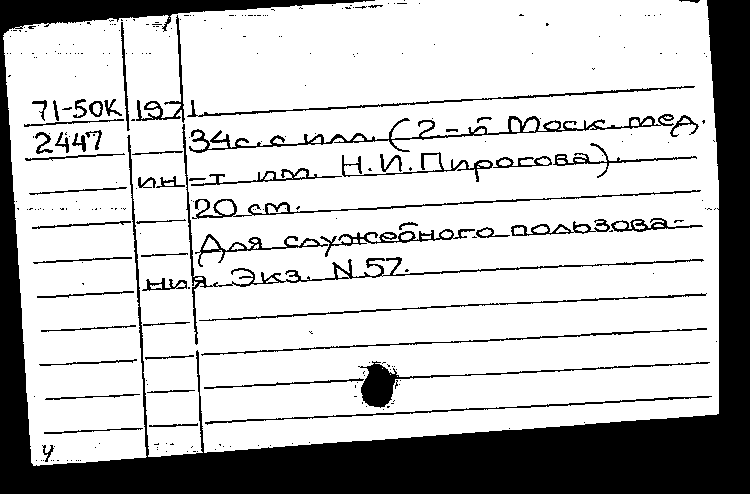 71-50К 1971.
2447 34с. с илл. (2-й Моск. мед.
ин-т им. Н.И.Пирогова).
20 см.
Для служебного пользова-
ния. Экз. N 57.